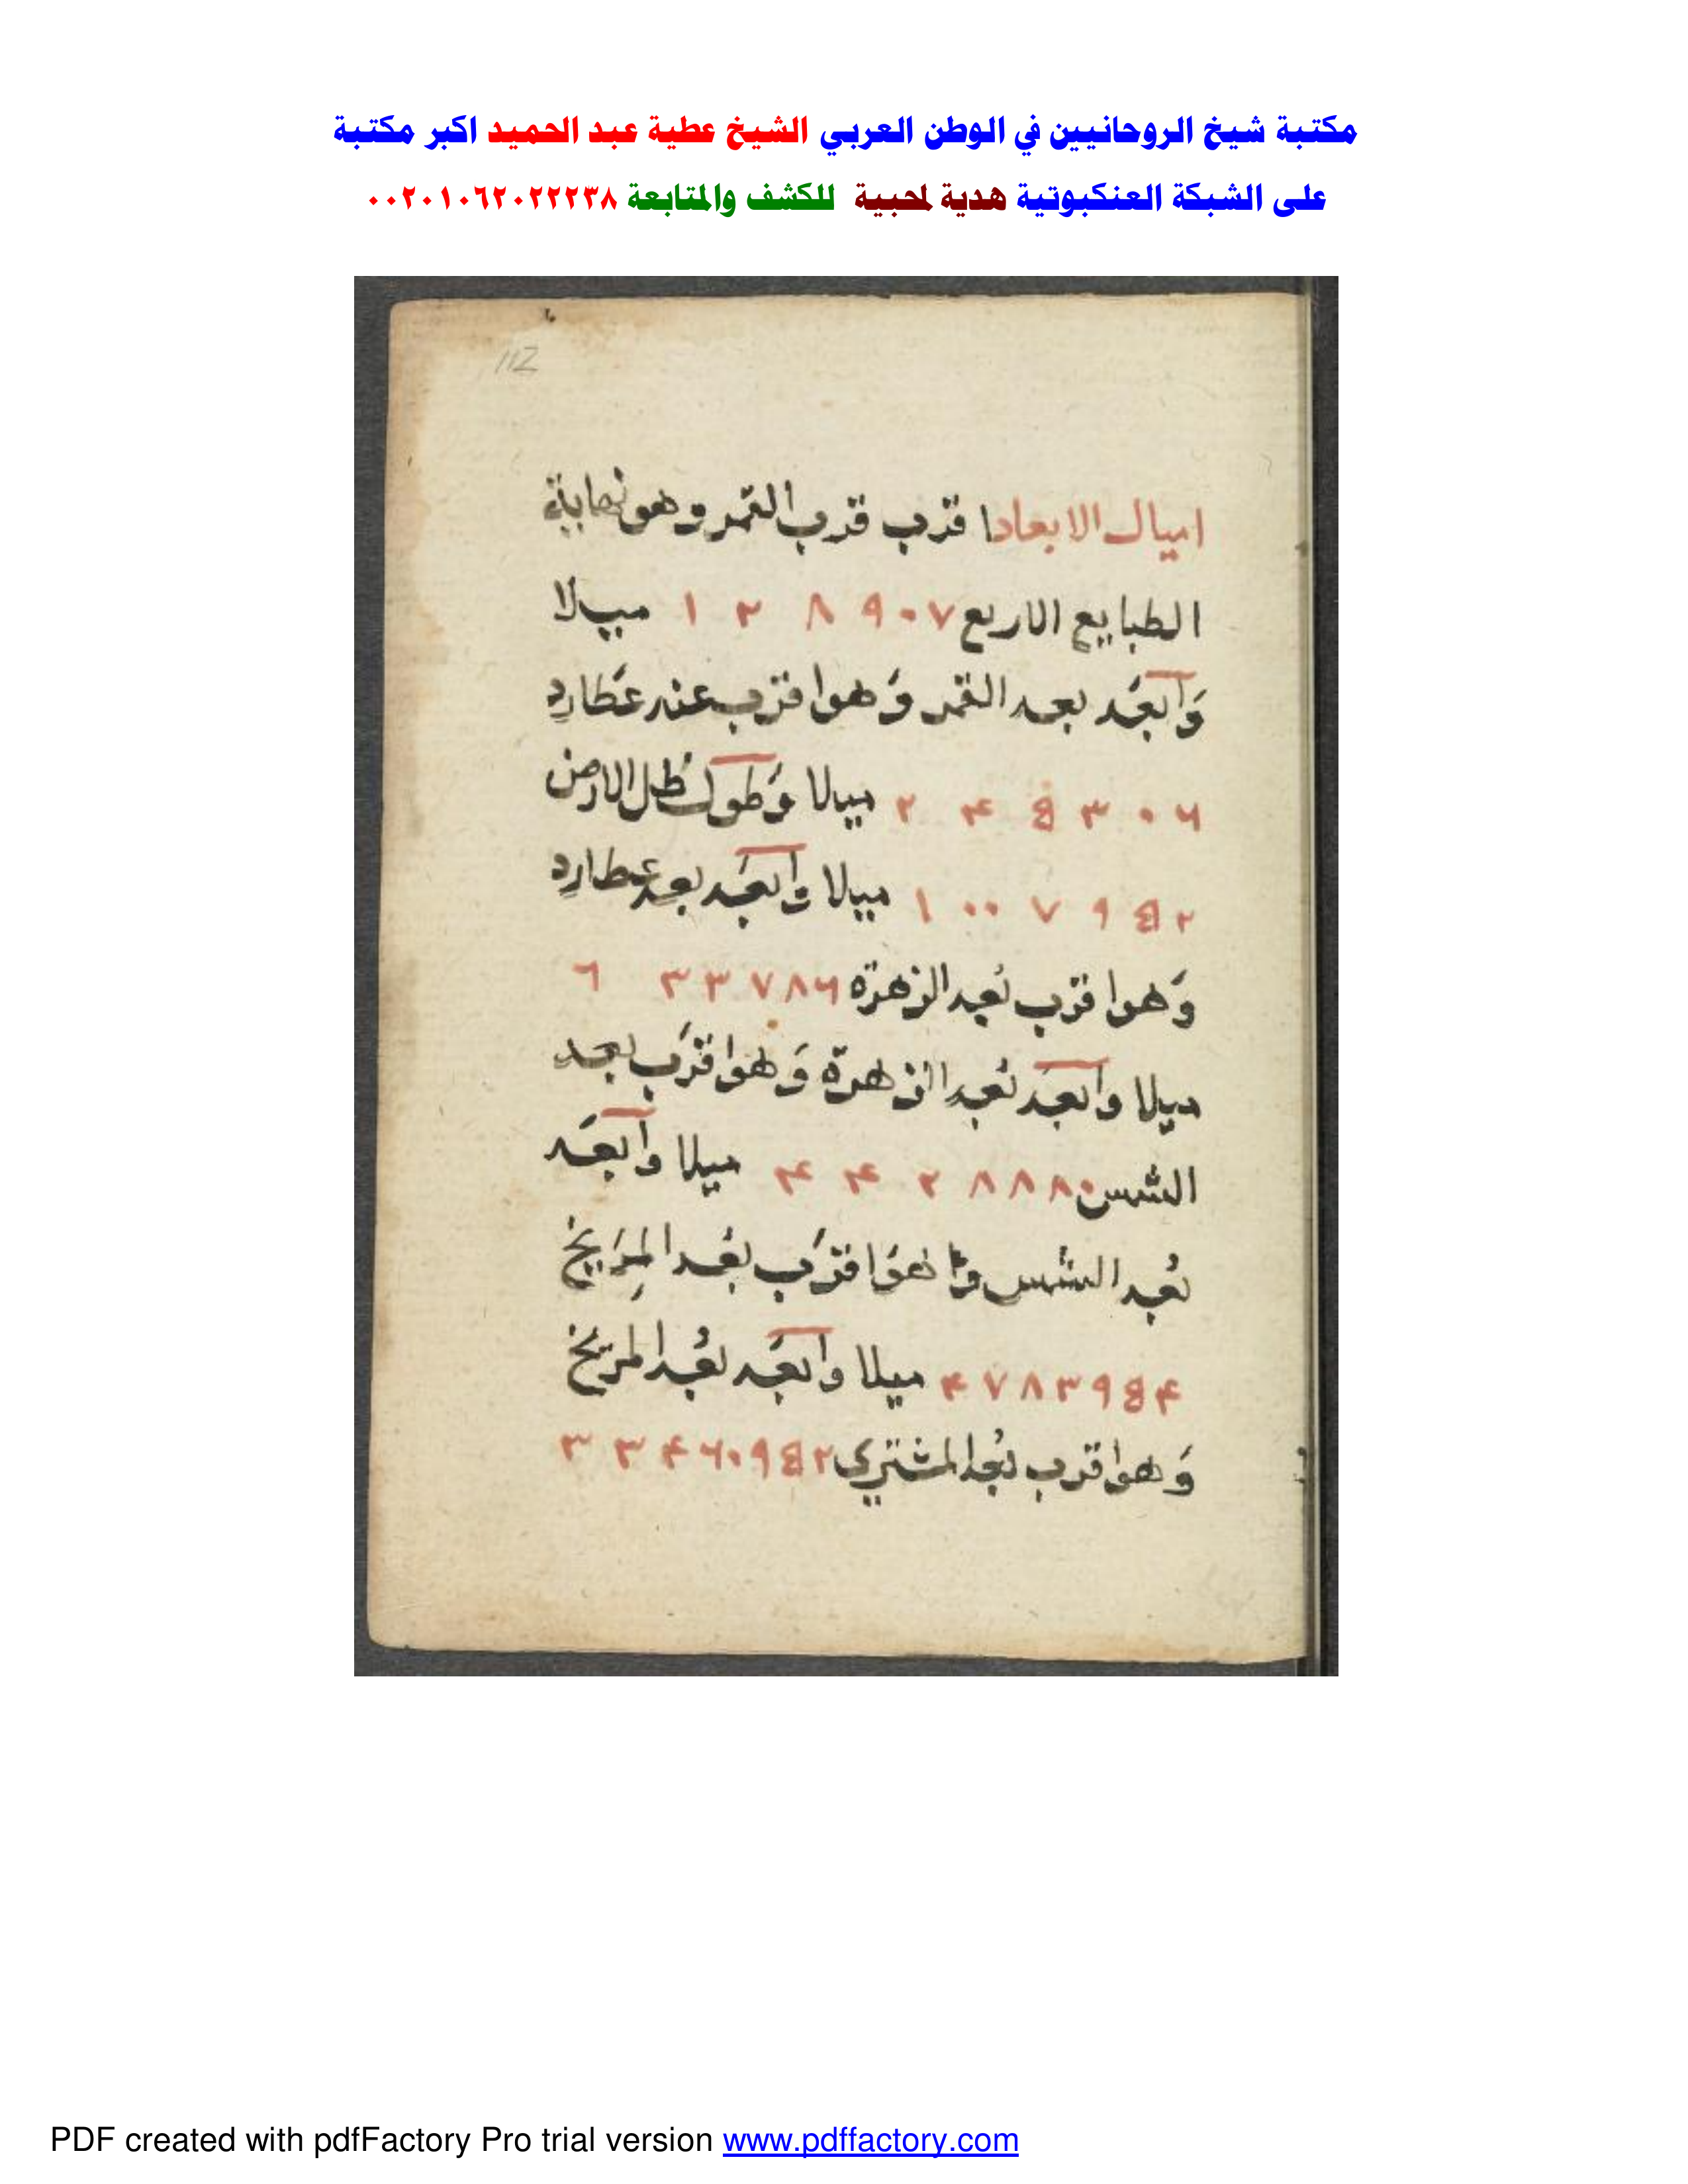 مكتبة شيخ الروحانيين في الوطن العربي الشيخ عطية عبد الحميد اكبر مكتبة
على الشبكة العنكبوتية هدية لمحبية للكشف والمتابعة ٠٠٢٠١٠٦٢٠٢٢٢٣٨
112
اميال الابعاد ا قرب قرب القمر وهو نهاية
الطبايع الاربع ١ ٣ ٨ ٩٠٧ ميلا
وَابعَد بعد القمر وَهوا قرب عند عطارد
٢ ۴ 8 ٣ ٠ ٦ ميلا وَطول ظل الارض
١ ٠٠ ٧ ٩ 8 ٢ ميلا وابعَد بعد عطارد
وَهوا قرب بُعد الزهرة ٦ ٣ ٣ ٧ ٨ ٦
ميلا وابعَد بُعد الزهرة وَهوا قرَب بعد
الشمس ۴ ۴ ٢ ٨ ٨ ٨ ٠ ميلا وابعَد
بُعد الشمس و هوَا قرَب بُعد المِرَيخ
۴ ٧ ٨ ٣ ٩ 8 ۴ ميلا وابعَد بُعد المريخ
وَهوا قرب بُعد المشتري ٣ ٣ ۴ ٦ ٠ ٩ 8 ٢
PDF created with pdfFactory Pro trial version www.pdffactory.com